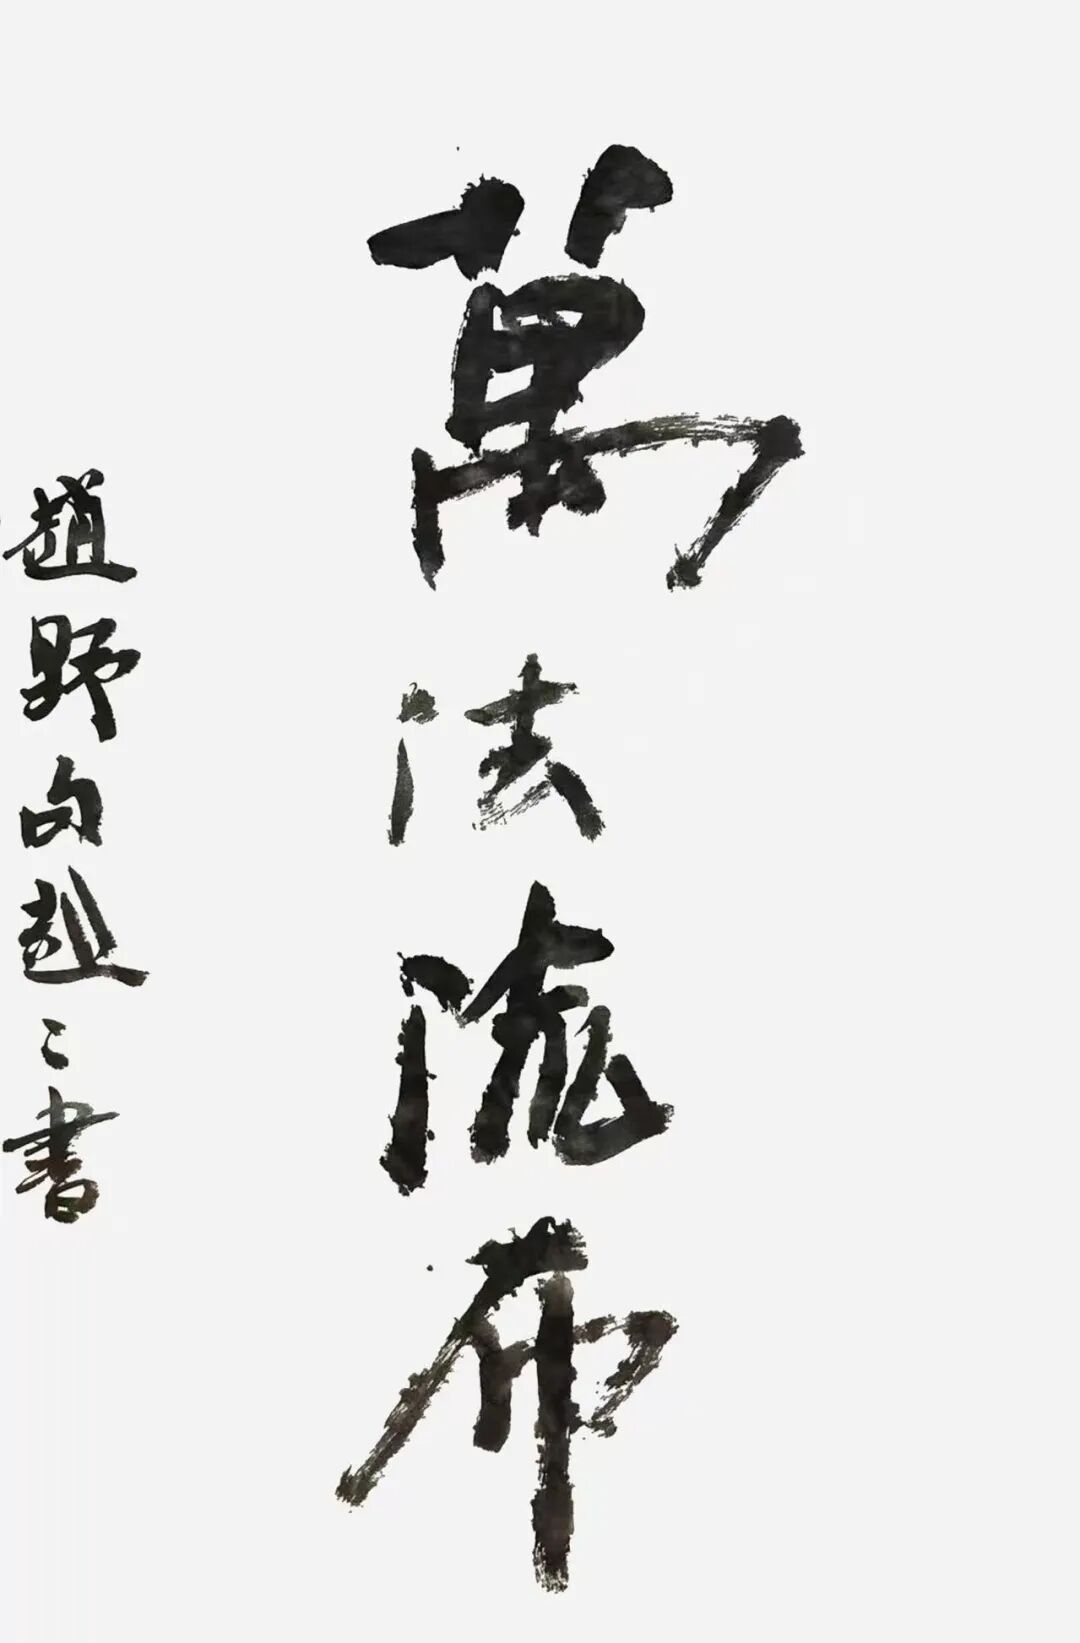 萬法流布
趙野句趙〻書